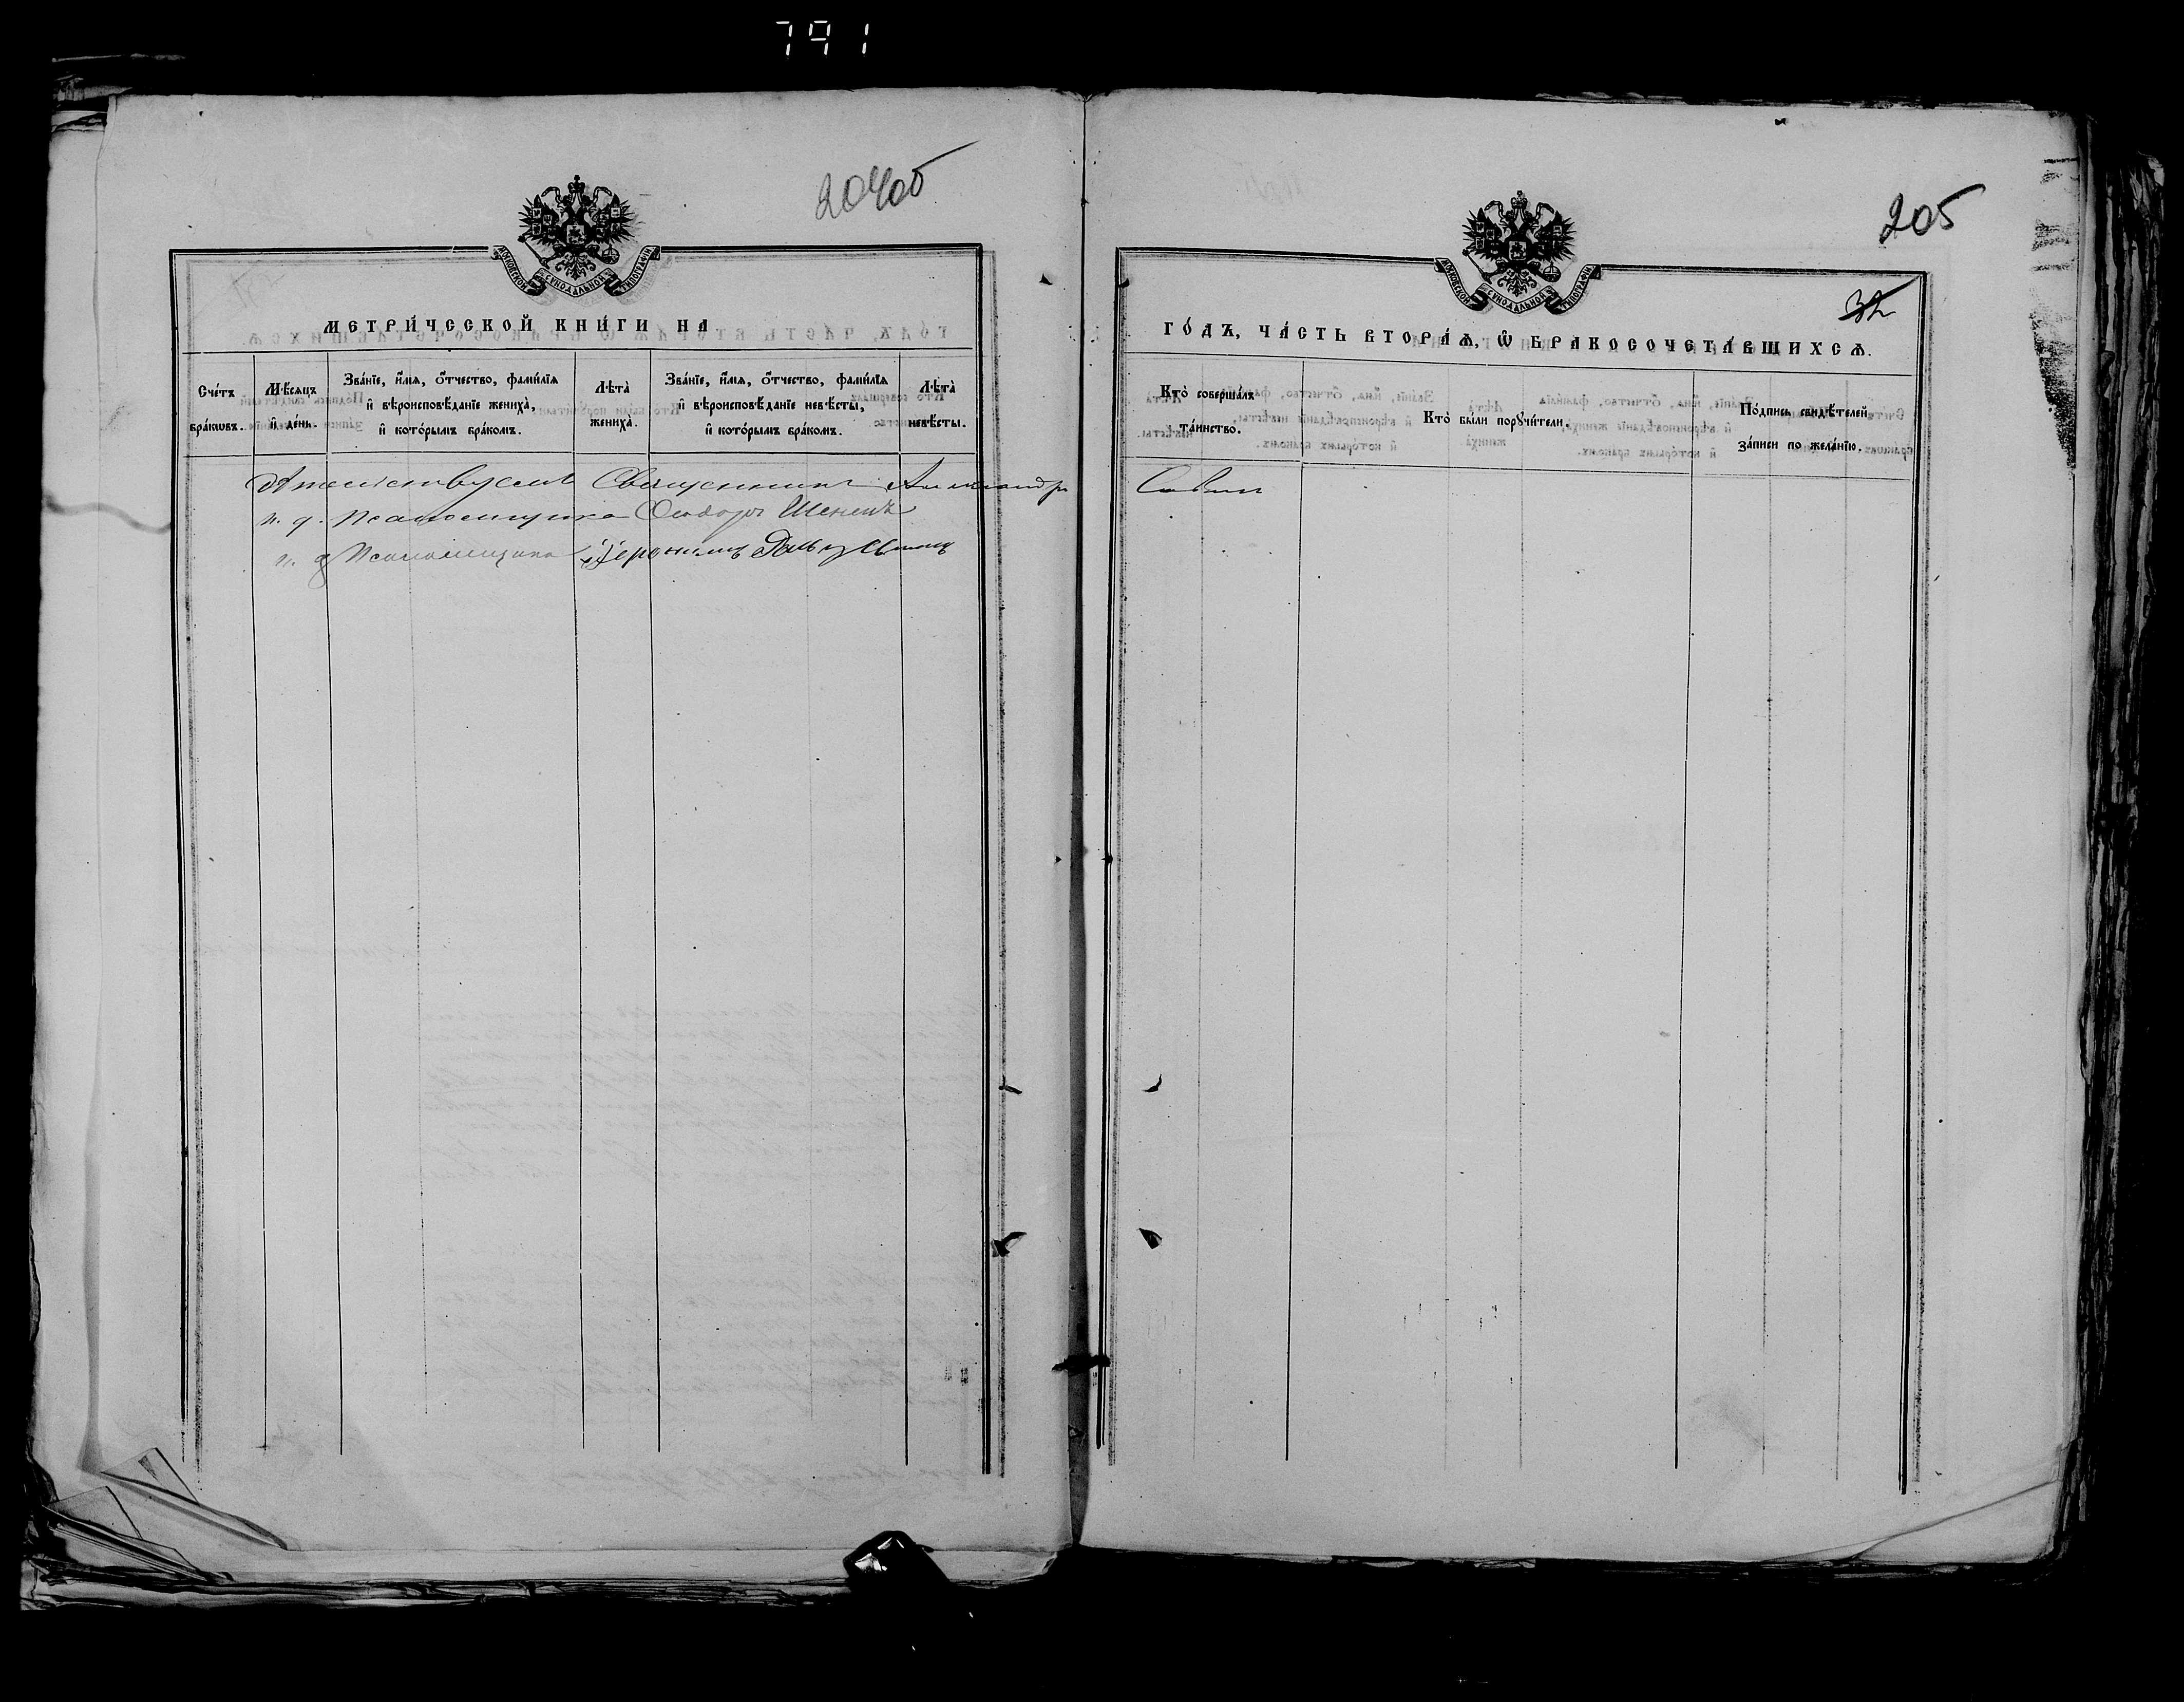 791
204об
МОСКОВСКОЙ СѴНОДАЛЬНОЙ ТИПОГРАФІИ
МЕТРИ́ЧЕССКОЙ КНИ́ГИ НА
Сче́тъ бра́кωвъ.
Мѣ́сяцъ и҆ де́нь.
Зва́нїе, и҆́мѧ, ѻ҆́тчество, фами́лїѧ и҆ вѣроисповѣ́данїе жениха̀, и҆ кото́рымъ бра́комъ.
Лѣта̀ жениха̀.
Зва́нїе, и҆́мѧ, ѻ҆́тчество, фами́лїѧ и҆ вѣроисповѣ́данїе невѣ́сты, и҆ кото́рымъ бра́комъ.
Лѣта̀ невѣ́сты.
Священникъ Александръ
и. д. Псаломщика Ѳеодоръ
и. д. Псаломщика Іеронимъ
205
32
МОСКОВСКОЙ СѴНОДАЛЬНОЙ ТИПОГРАФІИ
ГО́ДЪ, ЧА́СТЬ ВТОРА́Ѧ, Ѡ҆ БРАКОСОЧЕТА́ВШИХСѦ.
Кто̀ соверша́лъ та́инство.
Кто̀ бы́ли порꙋчи́тели.
По́дпись свидѣ́телей за́писи по жела́нїю.